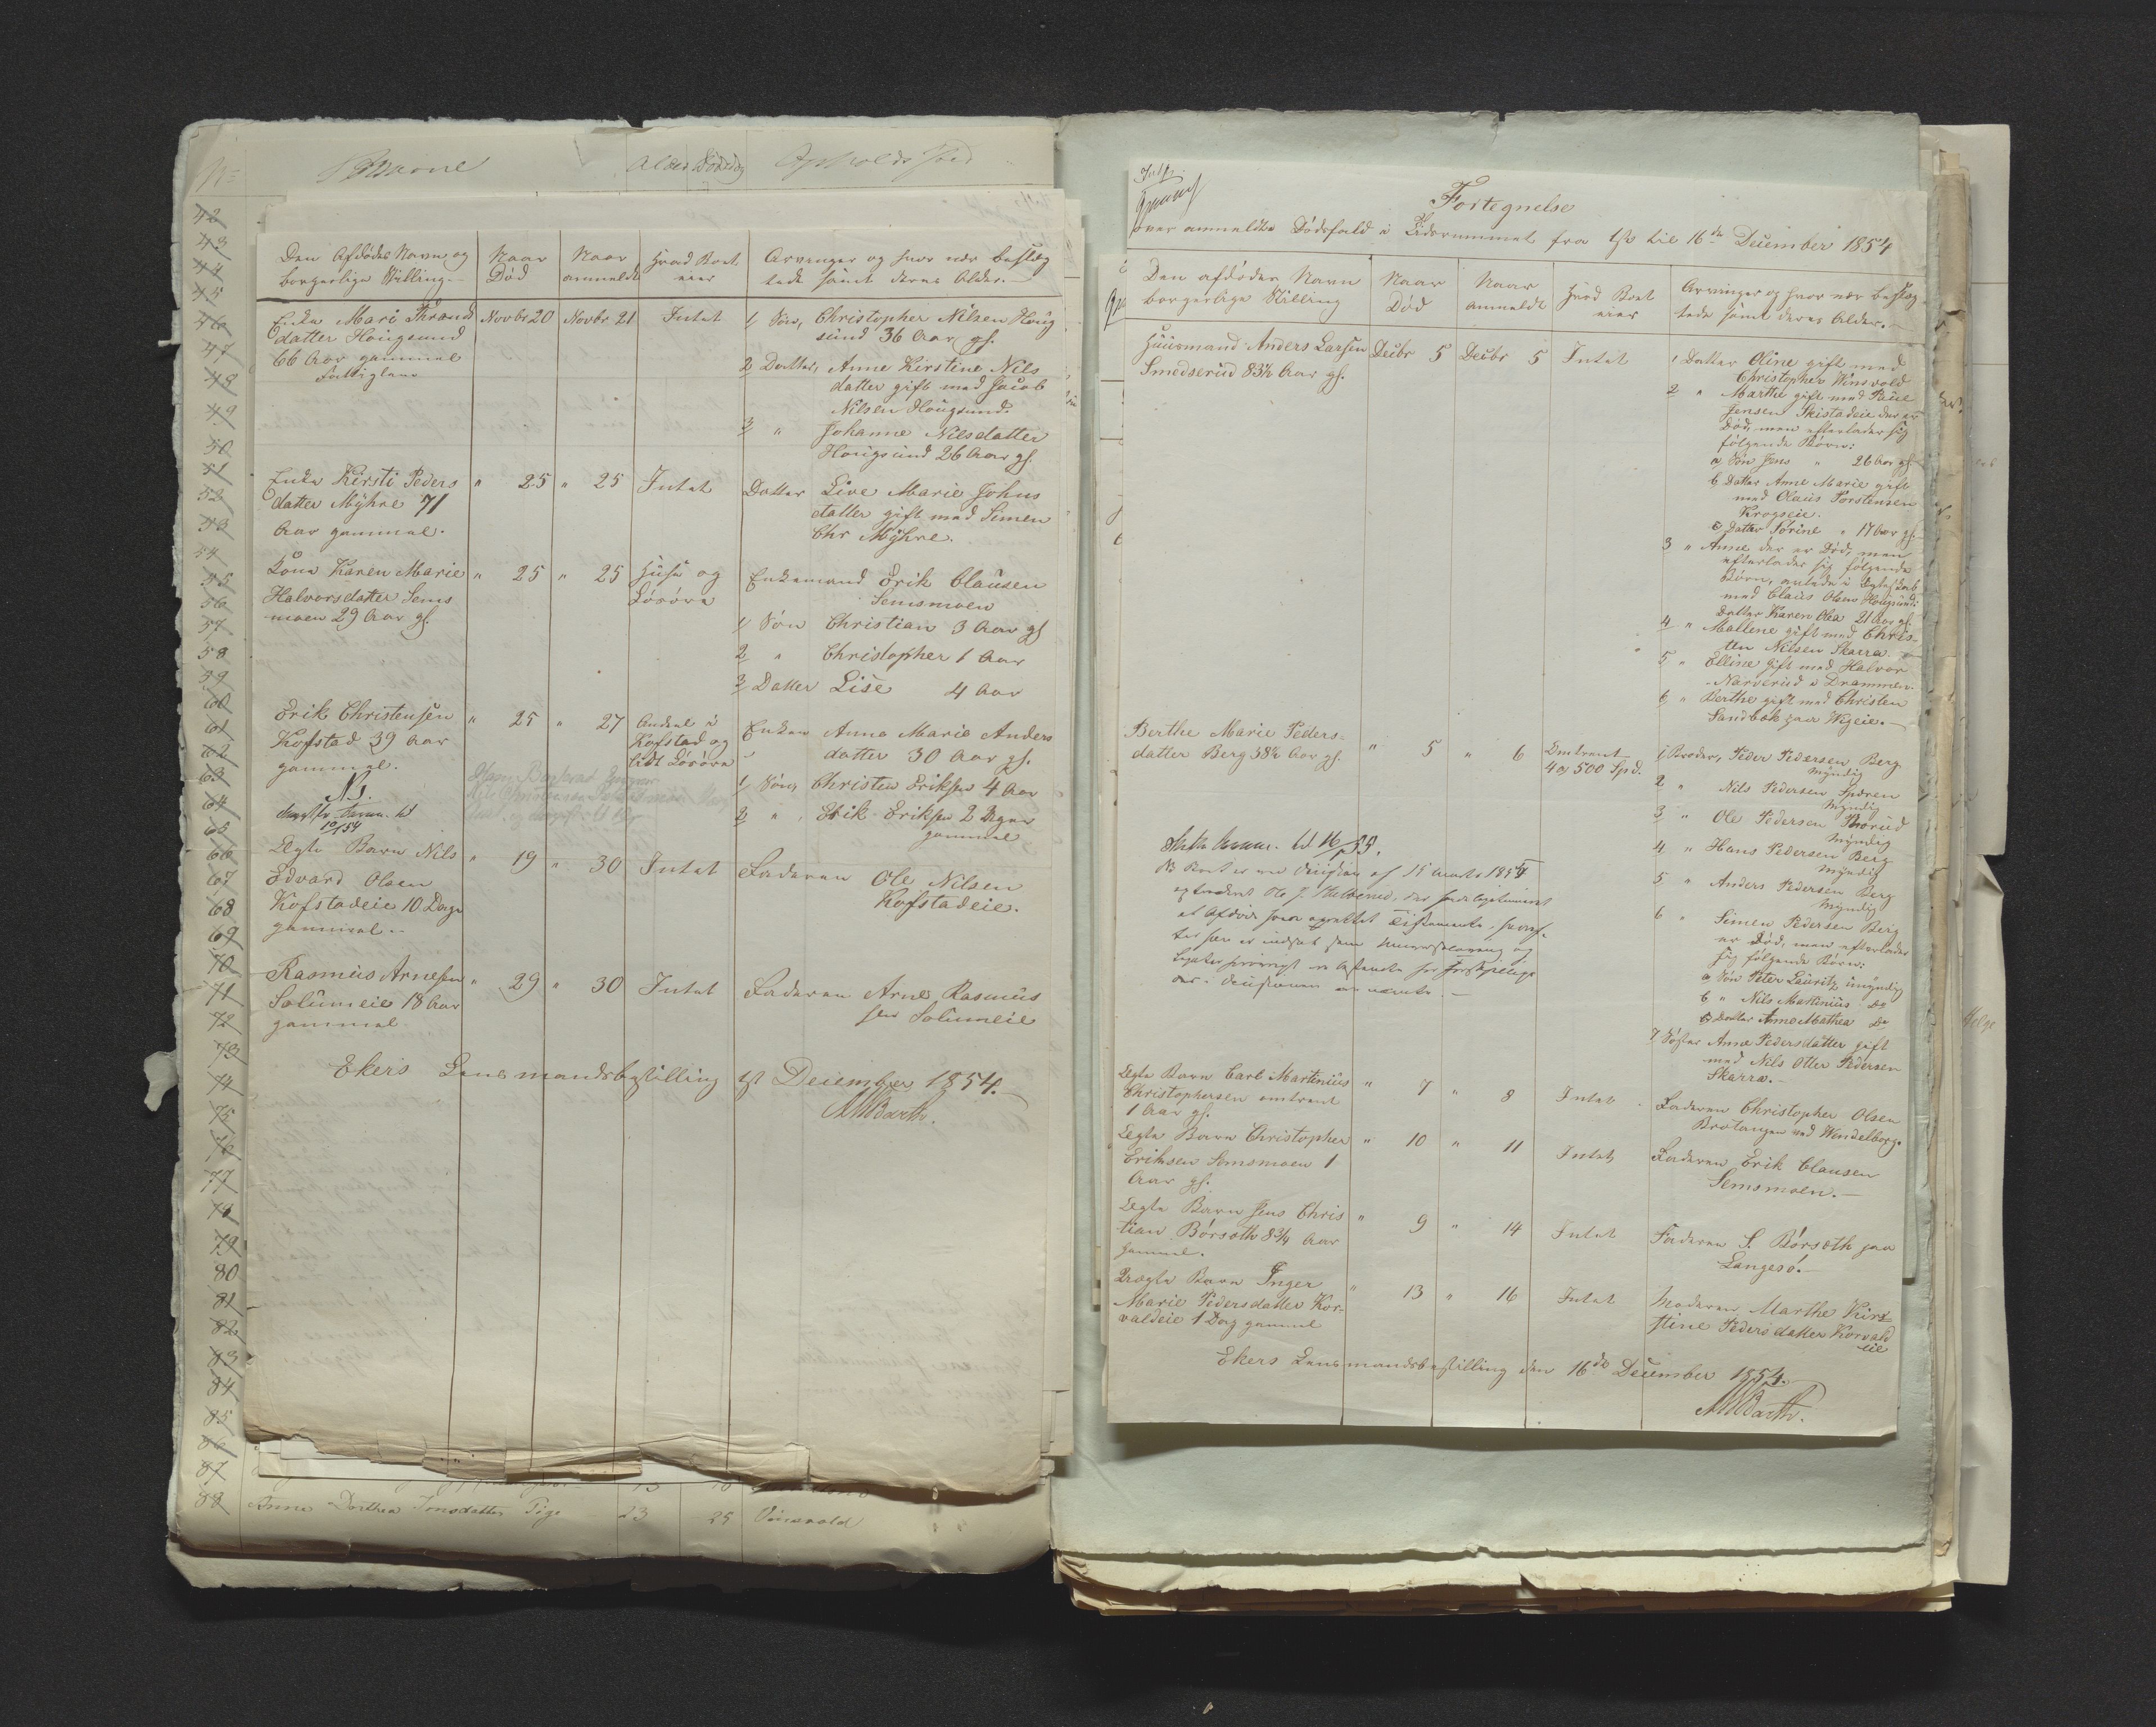 No Navne Alder Dødsdag Opholds Sted
42
43
44
45
46
47
48
49
50
51
52
53
54
55
56
57
58
59
60
61
62
63
64
65
66
67
68
69
70
71
72
73
74
75
76
77
78
79
80
81
82
83
84
85
86
87
88 Anne Dorthea Jonsdatter Pige 23 25 Vinsvold
Den Afdødes Navn og borgerlige Stilling.
Naar Død
Naar anmeldt
Hvad Boet eier
Arvinger og hvor nær beslægtede samt deres Alder.
Enke Mari Thrond Novbr 20 Novbr 21 Intet 1/ Søn, Christopher Nilsen Houg
datter Hougsund sund 36 Aar gl.
66 Aar gammel 2 Datter, Anne Kirstine Nils
Fattiglem datter gift med Jacob
Nilsen Hougsund.
3 " Johanne Nilsdatter
Hougsund 26 Aar gl.
Enke Kirsti Peders " 25 " 25 Intet Datter Live Marie Johns
datter Myhre 71 datter gift med Simen
Aar gammel. Chr Myhre.
Kone Karen Marie " 25 " 25 Huse og Enkemand Erik Clausen
Halvorsdatter Sems Løsøre Semsmoen
moen 29 Aar gl. 1/ Søn Christian 3 Aar gl
2 " Christopher 1 Aar
3/ Datter Lise 4 Aar
Erik Christensen " 25 " 27 Andeel i Enken Anne Marie Anders
Kofstad 39 Aar Kofstad og datter 30 Aar gl.
gammel. lidt Løsøre 1/ Søn, Christen Eriksen 4 Aar
2 " Erik Eriksen 2 Dger
gammel
Ægte Barn Nils " 19 " 30 Intet Faderen Ole Nilsen
Edvard Olsen Kofstadeie.
Kofstadeie 10 Dage
gammel.
Rasmus Arnesen " 29 " 30 Intet Faderen Arne Rasmus
Solumeie 18 Aar sen Solumeie
gammel
Ekers Lensmandsbestilling 1st December 1854.
MBarth.
Fortegnelse
over anmeldte Dødsfald i Tidsrummet fra 1ste til 16de December 1854
Den afdødes Navn borgerlige Stilling
Naar Død
Naar anmeldt
Hvad Boet eier
Arvinger og hvor nær beslægtede samt deres Alder.
Huusmand Anders Larsen Decbr 5 Decbr 5 Intet 1 Datter Oline gift med
Smedserud 83½ Aar gl. Christopher Vinsvold
2 " Marthe gift med Paul
Jensen Skistadeie der er
Død, men efterlader sig
følgende Børn:
a Søn Jens " 26 Aar gl.
b Datter Anne Marie gift
med Olaus Torstensen
Krogseie.
c Datter Torine " 17 Aar gl.
3 " Anne der er Død, men
efterlader sig følgende
Børn, avlede i Ægteskab
med Claus Olsen Hougsund:
Datter Karen Olea 21 Aar gl.
4 " Mallene gift med Chris-
ten Nilsen Skarra.
5 " Elline gift med Halvor
Narverud i Drammen.
6 " Berthe gift med Christen
Sandbæk paa Wigeie.
Berthe Marie Peders- " 5 " 6 Omtrent 1/ Broder, Peder Pedersen Berg
datter Berg 58½ Aar gl. 4 a 500 Spd. Myndig
2 " Nils Pedersen Spæren
Myndig
3 " Ole Pedersen Thorud
Myndig
4 " Hans Pedersen Berg
Myndig
5 " Anders Pedersen Berg
Myndig
6 " Simen Pedersen Berg
er Død, men efterlader
sig følgende Børn:
a Søn Peter Lauritz umyndig
b " Nils Mathinius Do
c Datter Anne Mathea Do
7 Søster Anne Pedersdatter gift
med Nils Otter Pedersen
Skarra.
Ægte Barn Carl Martinius " 7 " 8 Intet Faderen Christopher Olsen
Christophersen omtrent Brotangen ved Wendelborg.
1 Aar gl.
Ægte Barn Christopher " 10 " 11 Intet Faderen Erik Clausen
Eriksen Semsmoen 1 Semsmoen.
Aar gl.
Ægte Barn Jens Chris " 9 " 14 Intet Faderen S. Børseth paa
tian Børseth 8¾ Aar Langesø.
gammel.
Uægte Barn Inger " 13 " 16 Intet Moderen Marthe Kir-
Marie Pedersdatter Kor- stine Pedersdatter Korvald
valdeie 1 Dag gammel eie
Ekers Lensmandsbestilling den 16de December 1854.
MBarth.